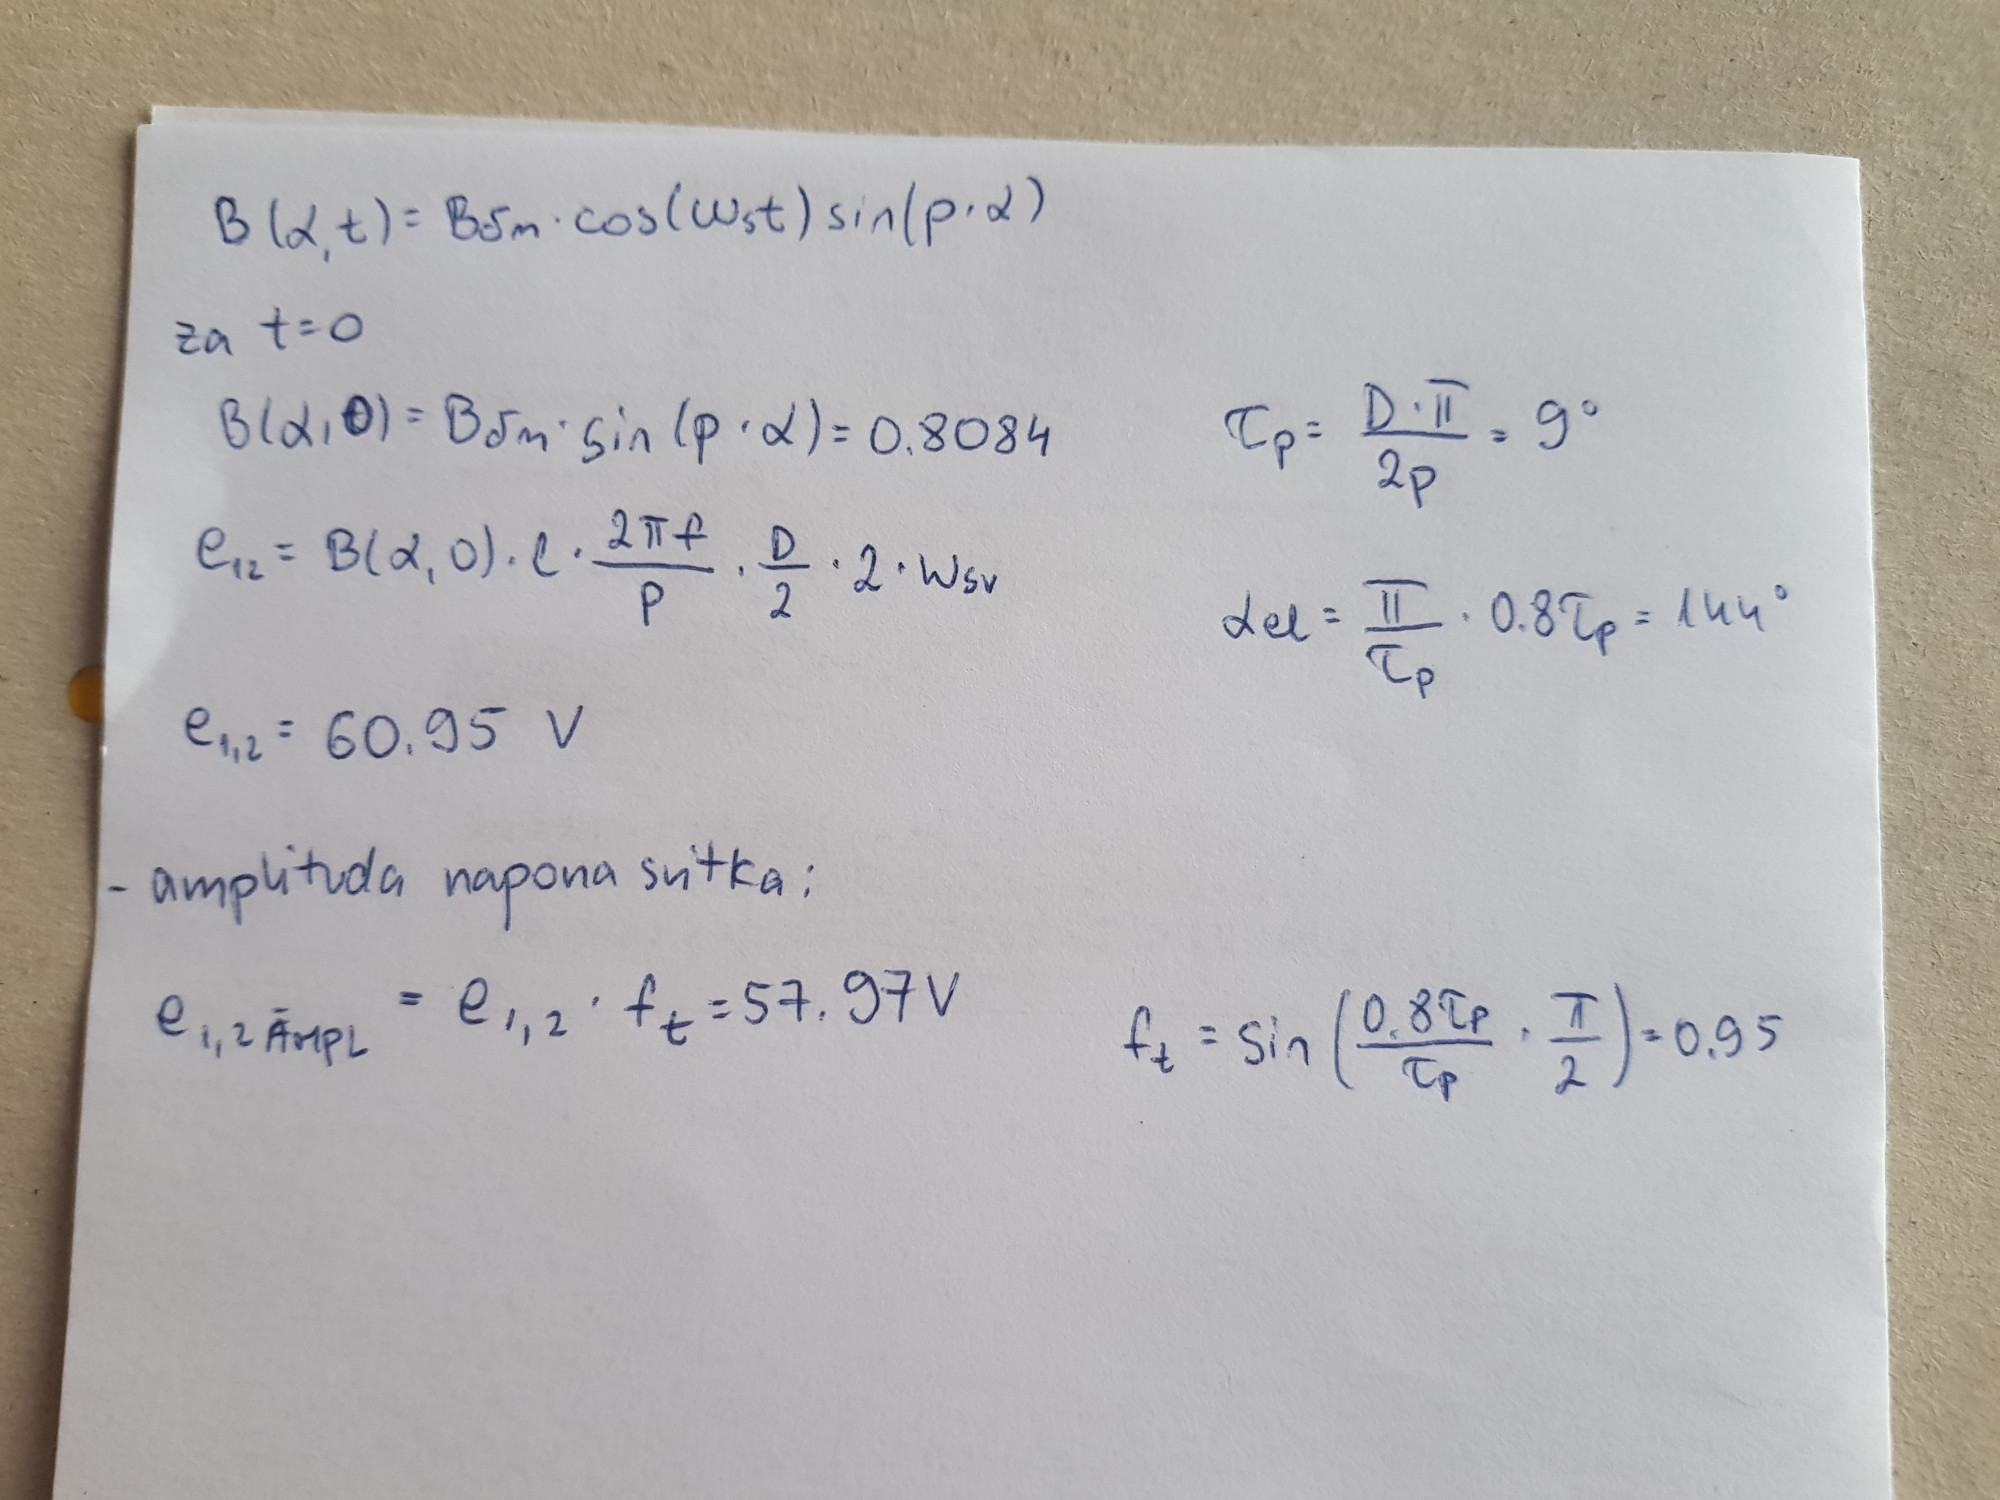 B(α,t) = Bδm · cos(ωst) sin(p·α)
za t=0
B(α,0) = Bδm · sin(p·α) = 0.8084
τp = D·π / 2p = 9°
e12 = B(α,0) · l · 2πf / p · D / 2 · 2 · wsv
αel = π / τp · 0.8τp = 144°
e1,2 = 60.95 V
- amplituda napona svitka:
e1,2 AMPL = e1,2 · ft = 57.97V
ft = sin(0.8τp / τp · π / 2) = 0.95